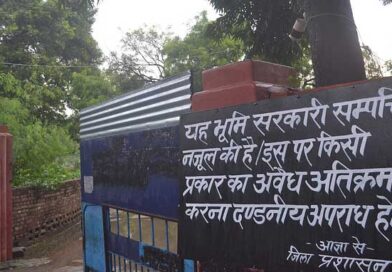 यह भूमि सरकारी सम्पत्ति
नजूल की है/इस पर किसी
प्रकार का अवैध अतिक्रम
करना दण्डनीय अपराध है
- आज्ञा से -
जिला प्रशासन